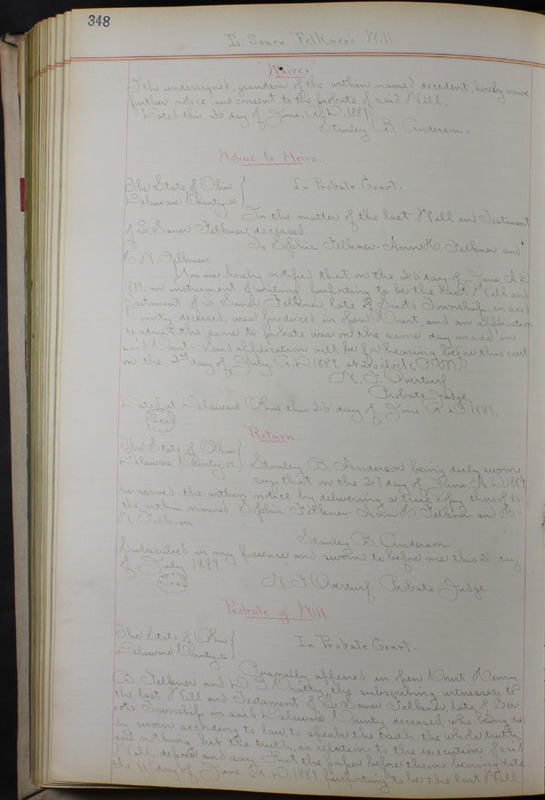 348
L. Saner Felkners Will
"Waiver"
I the undersigned, grandson of the within named decedent, hereby waive
further notice, and consent to the probate of said Will.
Dated this 26" day of June, A.D. 1889
Stanley B. Anderson.
Notice to Heirs.
The State of Ohio
In Probate Court.
Delaware County, ss
In the matter of the last Will and Testament
of L. Saner Felkner, deceased
To Sophia Felkner - Ann H. Felkner and
H. N. Felkner.
You are hereby notified that on the 26" day of June A.D.
1889, an instrument of writing, purporting to be the last Will and
Testament of L. Saner Felkner late of Scioto Township, in said
County, deceased, was produced in open Court, and an application
to admit the same to probate was on the same day made in
said Court - Said application will be for hearing before this court
on the 2nd day of July A.D. 1889, at o'clock P.M.
N. F. Overturf
Probate Judge
Dated at Delaware Ohio this 26" day of June A.D. 1889.
Seal
Return
The State of Ohio
Delaware County, ss
Stanley B. Anderson being duly sworn
says that on the 27 day of June, A.D. 1889
he served the within notice by delivering a true copy thereof to
the within named Sophia Felkner Ann H. Felkner and H.
N. Felkner
Stanley B. Anderson
Subscribed in my presence and sworn to before me this 2" day
of July 1889
Seal
N. F. Overturf Probate Judge
Probate of Will
The State of Ohio
In Probate Court.
Delaware County, ss
Personally appeared in open Court Henry
B. Felkner and the subscribing witnesses to
the last Will and Testament of L. Saner Felkner late of Sci-
oto Township in said Delaware County deceased, who being du-
ly sworn according to law to speak the truth the whole truth
and nothing but the truth, in relation to the execution of said
Will, depose and say, that the paper before them bearing date
the 11" day of June A.D. 1889 purporting to be the last Will